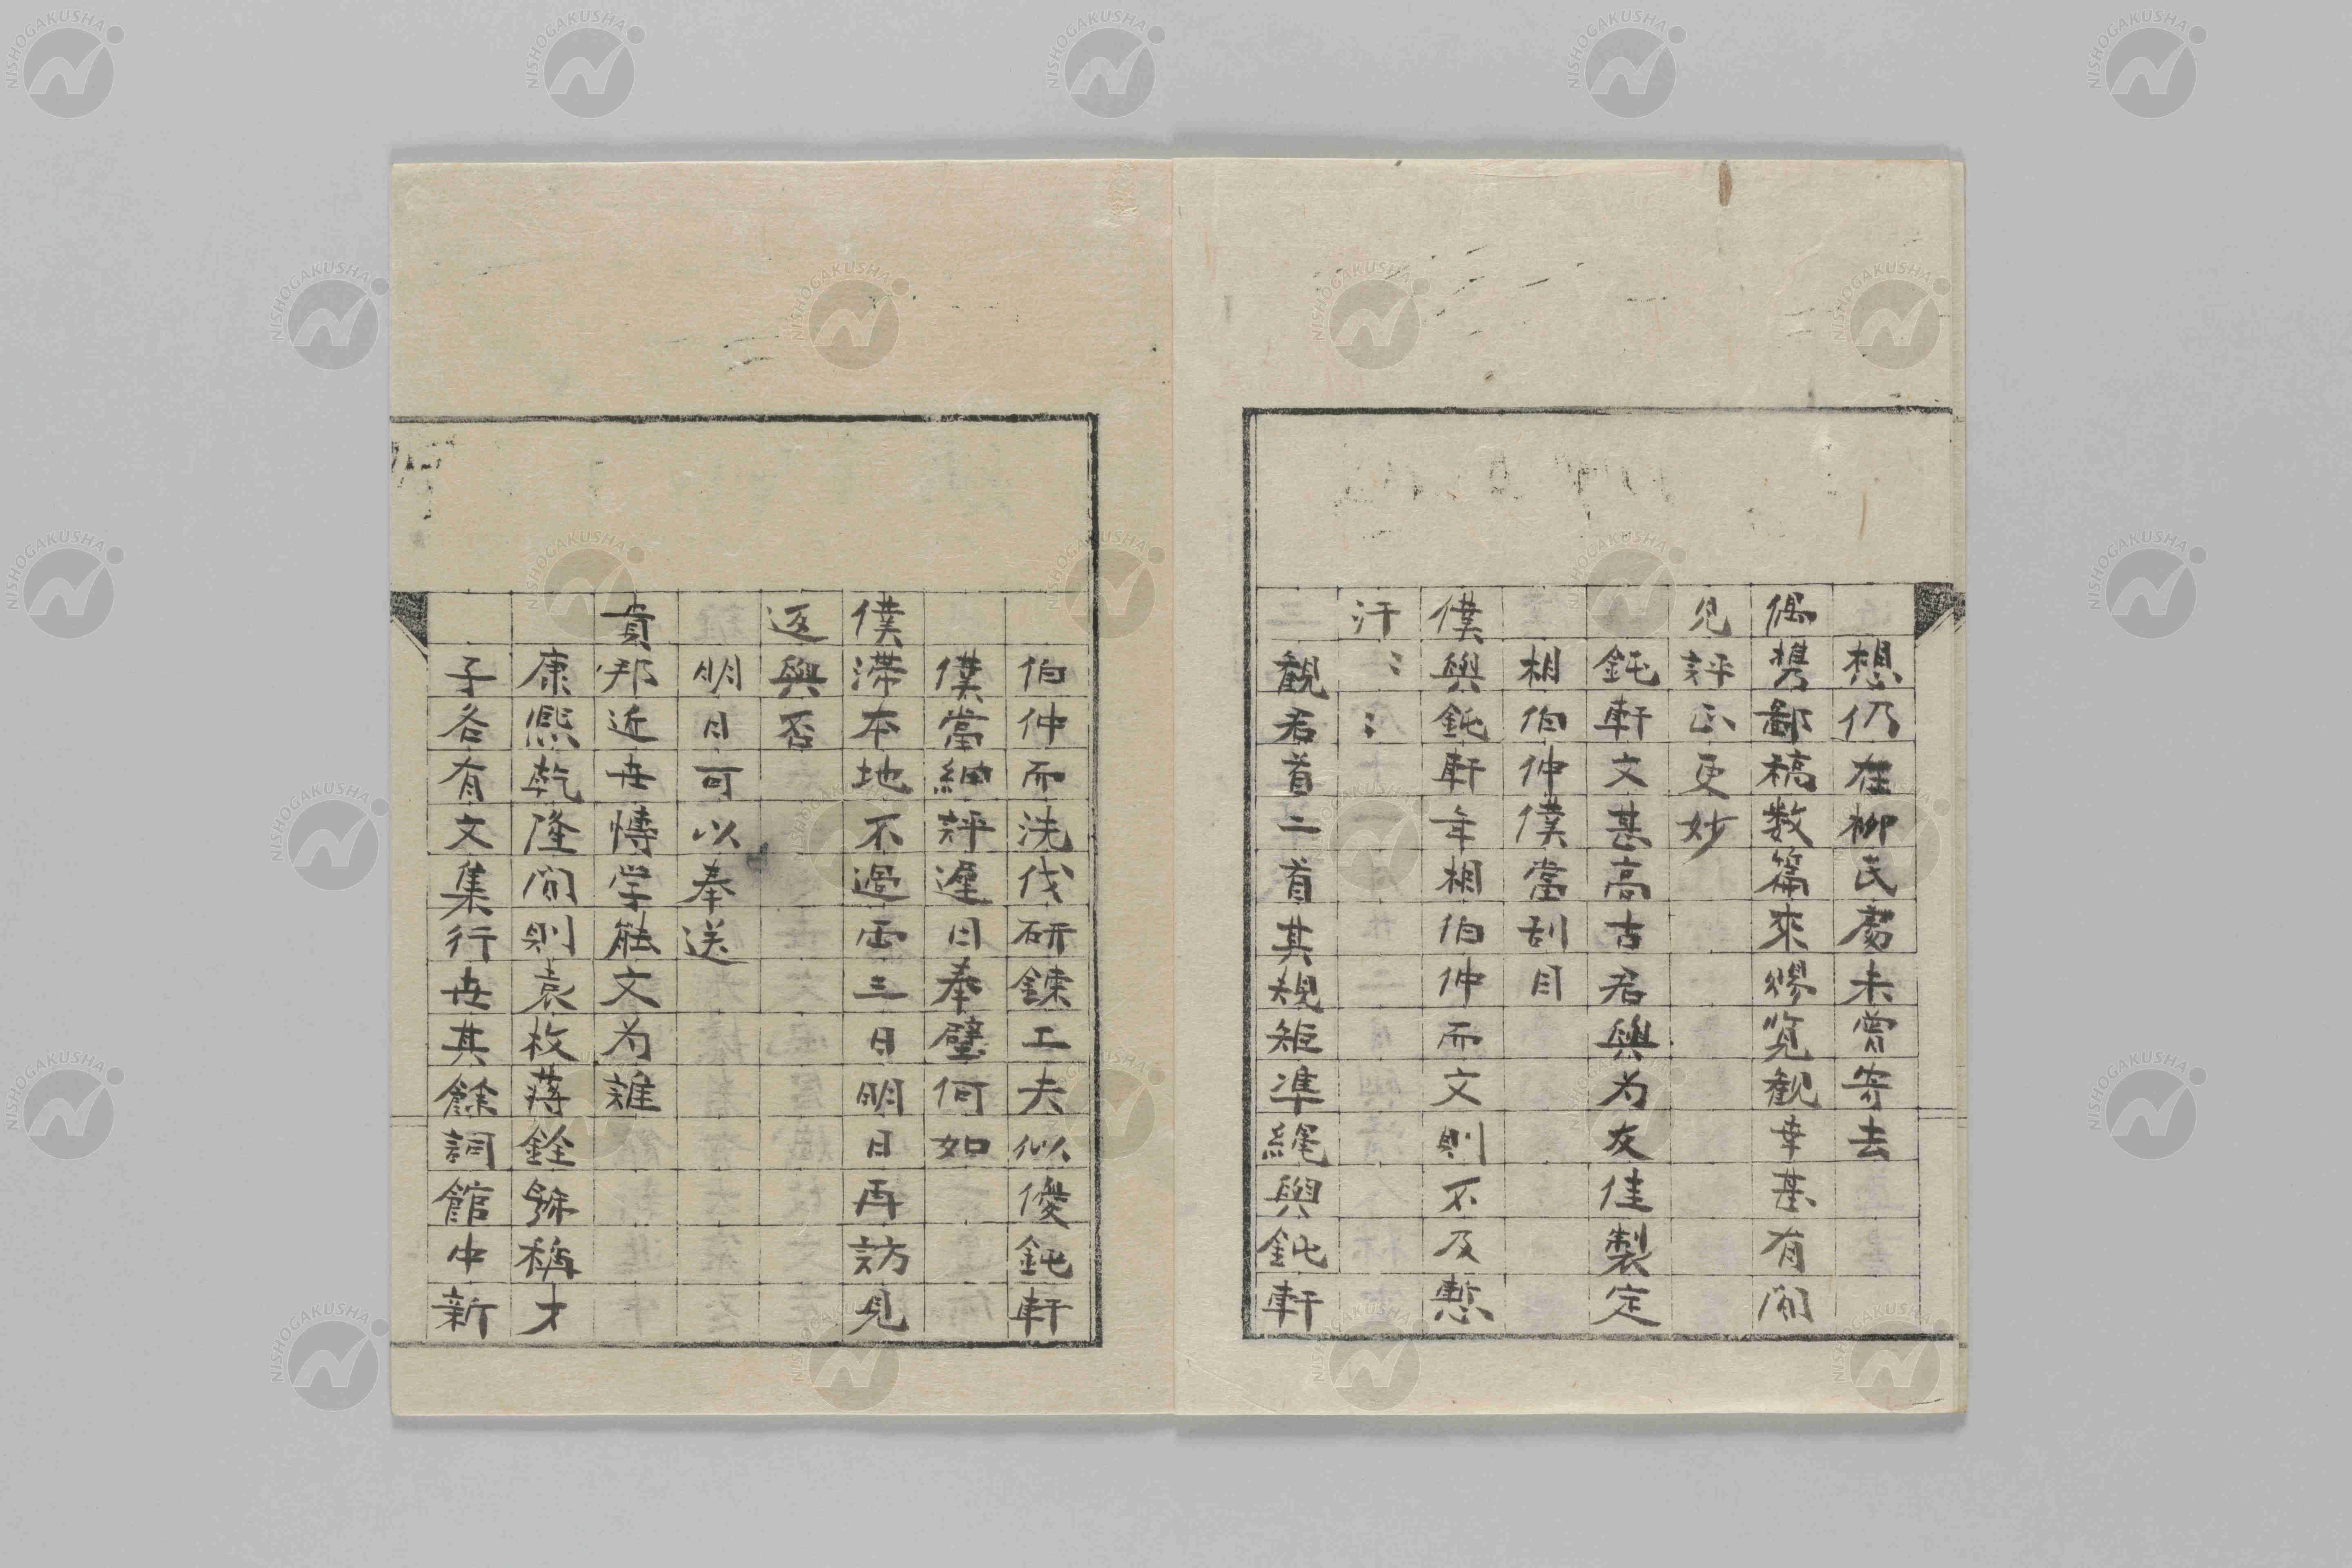 想仍在柳氏處未曾寄去
偶携鄙稿数篇來賜览観幸甚有闲
见評正更妙
鈍軒文甚高古君與为友佳製定
相伯仲僕當刮目
僕與鈍軒年相伯仲而文則不及慙
汗〻〻
観君首二首其規矩準繩與鈍軒
伯仲而洗伐研錬工夫似後鈍軒
僕當細評遲日奉璧何如
僕滞本地不過兩三日明日再訪見
返與否
明日可以奉送
貴邦近世博学能文为誰
康熈乾隆间則袁枚蒋銓號稱才
子各有文集行世其餘詞館中新
NISHOGAKUSHA